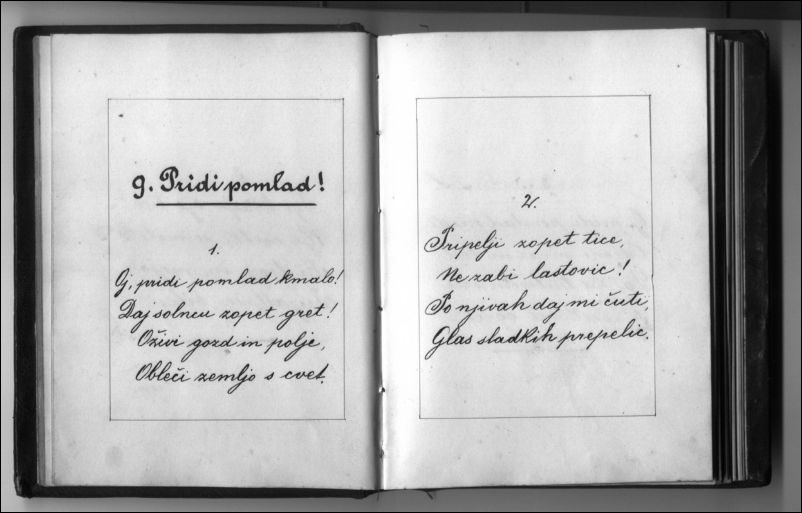 9. Pridi pomlad!
1.
Oj, pridi pomlad kmalo!
Daj solncu zopet gret!
Oživi gozd in polje,
Obleči zemljo s cvet.
2.
Pripelji zopet tice,
Ne zabi lastovic!
Po njivah daj mi čuti,
Glas sladkih prepelic.